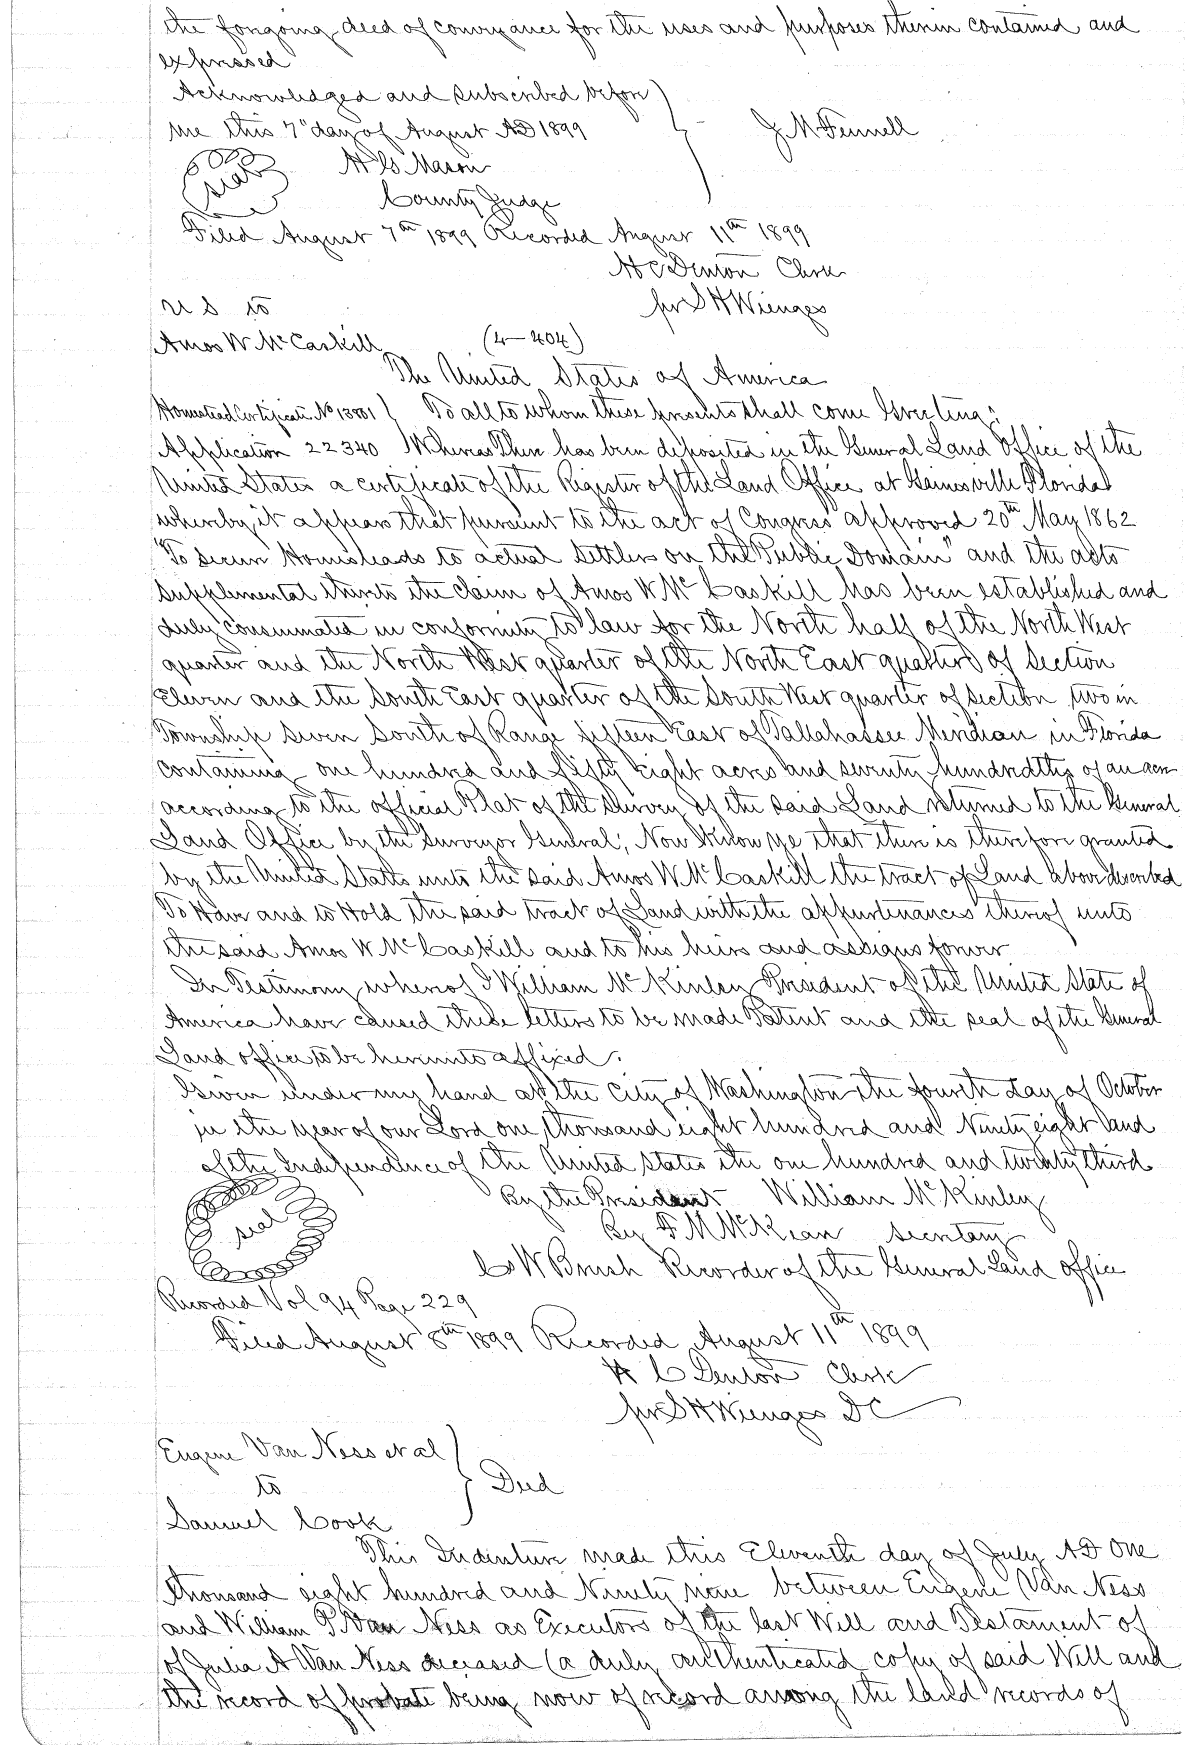 the forgoing deed of conveyance for the uses and purposes therin contained and
expressed
Acknowledged and subscribed before
me this 7" day of August AD 1899
J M Fennell
seal
H G Mason
County Judge
Filed August 7th 1899 Recorded August 11th 1899
H C Denton Clerk
pr S H Wienges
U S to
Amos W McCaskill
(4-404)
The United States of America
Homestead Certificate No 13801 } To all to whom these presents shall come Greeting;
Application 22340 Whereas There has been deposited in the General Land Office of the
United States a certificate of the Register of the Land Office at Gainesville Florida
whereby it appears that pursuant to the act of Congress approved 20th May 1862
"To secure Homesteads to actual Settlers on the Public Domain" and the acts
supplemental thereto the claim of Amos W McCaskill has been established and
duly consummated in conformity to law for the North half of the North West
quarter and the North West quarter of the North East quarter of Section
Eleven and the South East quarter of the South West quarter of section two in
Township Seven South of Range fifteen East of Tallahassee Meridian in Florida
containing one hundred and fifty eight acres and seventy hundredths of an acre
according to the official Plat of the survey of the said Land returned to the General
Land Office by the Surveyor General; Now Know ye that there is therefore granted
by the United States unto the said Amos W McCaskill the tract of Land above described
To Have and to Hold the said tract of Land with the appurtenances thereof unto
the said Amos W McCaskill and to his heirs and assigns forever
In Testimony whereof I William McKinley President of the United State of
America have caused these letters to be made Patent and the seal of the General
Land office to be hereunto affixed.
Given under my hand at the City of Washington the fourth day of October
in the year of our Lord one thousand eight hundred and Ninety eight and
of the Independence of the United States the one hundred and twenty third
By the President William McKinley
By F M McKean Secretary
seal
C W Brush Recorder of the General Land office
Recorded Vol 94 Page 229
Filed August 8th 1899 Recorded August 11th 1899
H C Denton Clerk
pr S H Wienges DC
Eugene Van Ness et al
to } Deed
Samuel Cook
This Indenture made this Eleventh day of July AD One
thousand eight hundred and Ninety nine between Eugene Van Ness
and William P. Van Ness as Executors of the last Will and Testament of
of Julia A Van Ness deceased (a duly authenticated copy of said Will and
the record of probate being now of record among the land records of